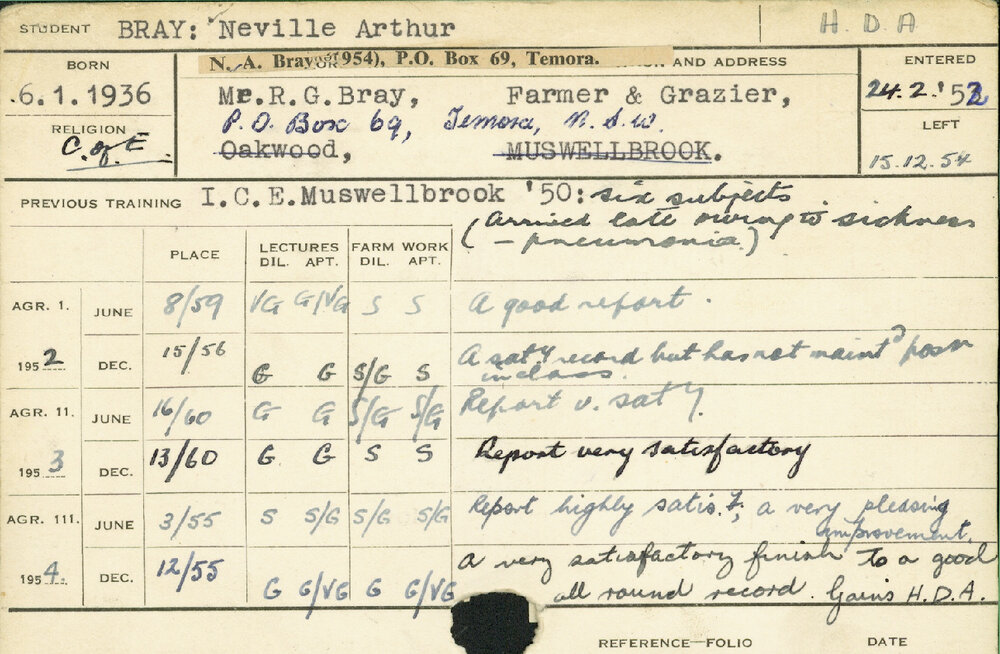 STUDENT BRAY: Neville Arthur H.D.A
N. A. Bray 1954), P.O. Box 69, Temora. AND ADDRESS
BORN
6.1.1936
RELIGION
C. of E.
Mr.R.G.Bray, Farmer & Grazier,
P.O. Box 69, Temora, N.S.W.
Oakwood, MUSWELLBROOK.
ENTERED
24.2.'52
LEFT
15.12.54
PREVIOUS TRAINING I.C.E.Muswellbrook '50: six subjects
(Arrived late owing to sickness
- pneumonia.)
PLACE LECTURES FARM WORK
DIL. APT. DIL. APT.
AGR. 1. JUNE 8/59 VG G/VG S S A good report.
1952 DEC. 15/56 G G S/G S A sat'y record but has not maint'd posn
in class.
AGR. 11. JUNE 16/60 G G S/G S/G Report v. sat'y.
1953 DEC. 13/60 G G S S Report very satisfactory
AGR. 111. JUNE 3/55 S S/G S/G S/G Report highly satis.y, a very pleasing
improvement.
1954 DEC. 12/55 G G/VG G G/VG A very satisfactory finish to a good
all round record. Gains H.D.A.
REFERENCE—FOLIO DATE